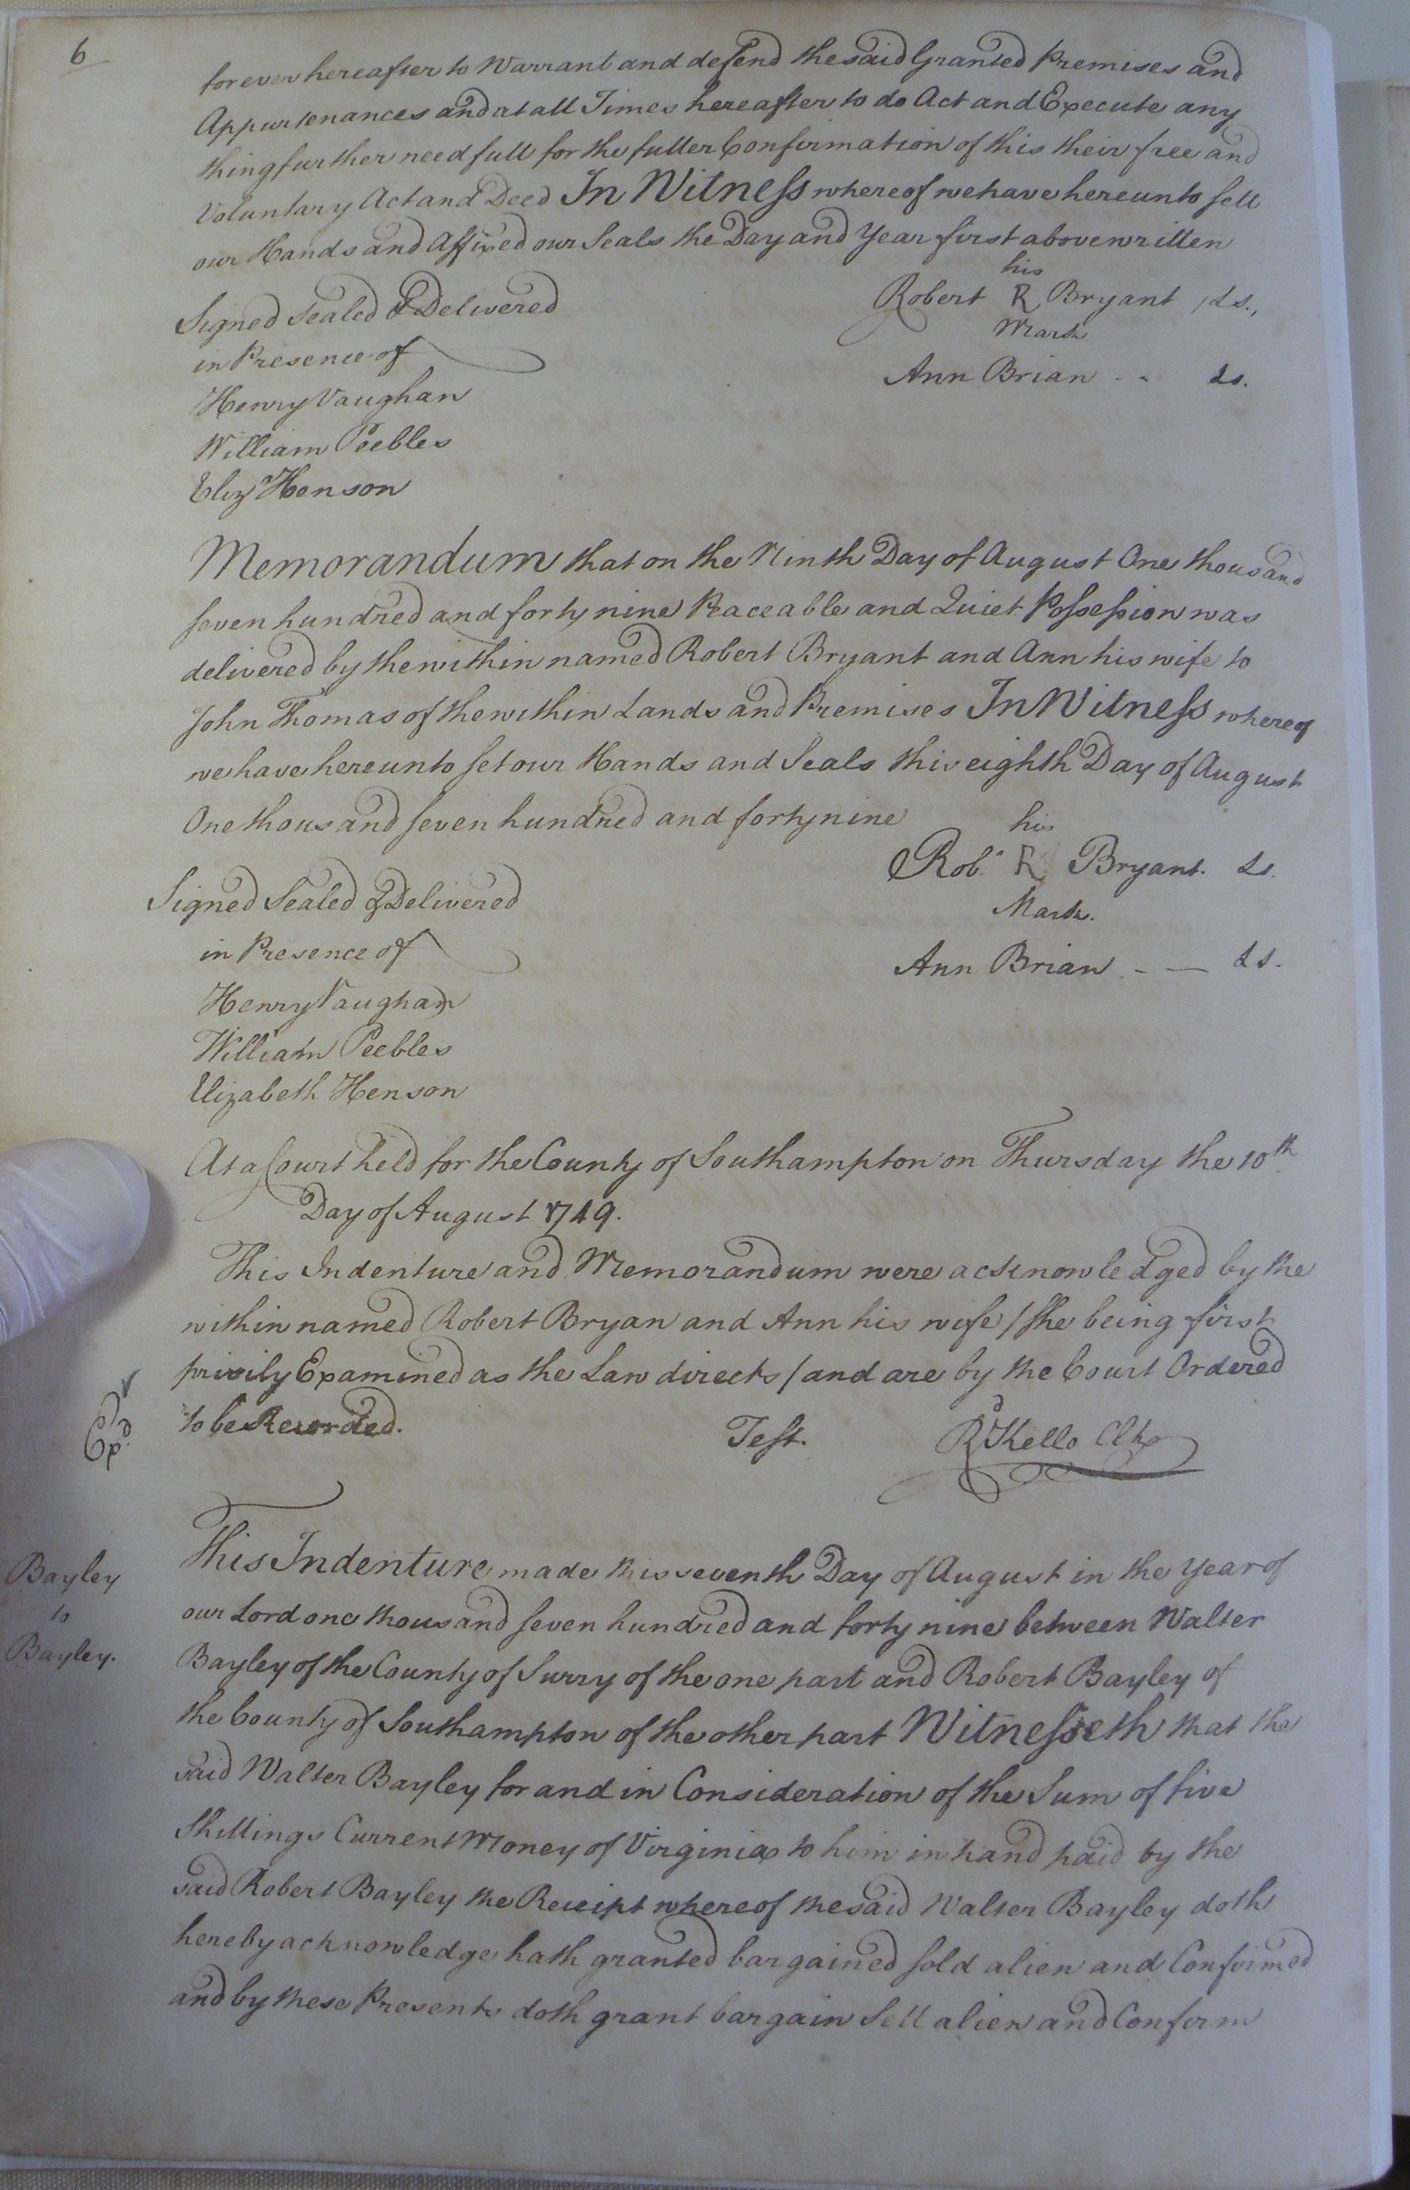 6
forever hereafter to Warrant and defend the said Granted Premises and
Appurtenances and at all Times hereafter to do Act and Execute any
thing further needfull for the fuller Confirmation of this their free and
Voluntary Act and Deed In Witness whereof we have hereunto sett
our Hands and Affixed our Seals the Day and Year first above written
his
Signed Sealed & Delivered Robert R Bryant Ls.,
Mark
in Presence of
Ann Brian - - Ls.
Henry Vaughan
William Peebles
Eliz Henson
Memorandum that on the Ninth Day of August One thousand
seven hundred and forty nine Peaceable and Quiet Possession was
delivered by the within named Robert Bryant and Ann his wife to
John Thomas of the within Lands and Premises In Witness whereof
we have hereunto set our Hands and Seals this eighth Day of August
One thousand seven hundred and forty nine
his
Robt. R Bryant. Ls.
Signed Sealed & Delivered Mark.
in Presence of Ann Brian - — Ls.
Henry Vaughan
William Peebles
Elizabeth Henson
At a Court held for the County of Southampton on Thursday the 10th
Day of August 1749.
This Indenture and Memorandum were acknowledged by the
within named Robert Bryan and Ann his wife / She being first
privily Examined as the Law directs / and are by the Court Ordered
to be Recorded. Test. Rd Kello Clk
Exd.
This Indenture made this seventh Day of August in the Year of
our Lord one thousand seven hundred and forty nine between Walter
Bayley of the County of Surry of the one part and Robert Bayley of
the County of Southampton of the other part Witnesseth that the
said Walter Bayley for and in Consideration of the Sum of five
Shillings Current Money of Virginia to him in hand paid by the
said Robert Bayley the Receipt whereof the said Walter Bayley doth
hereby acknowledge hath granted bargained sold alien and Confirmed
and by these Presents doth grant bargain Sell alien and Confirm
Bayley
to
Bayley.